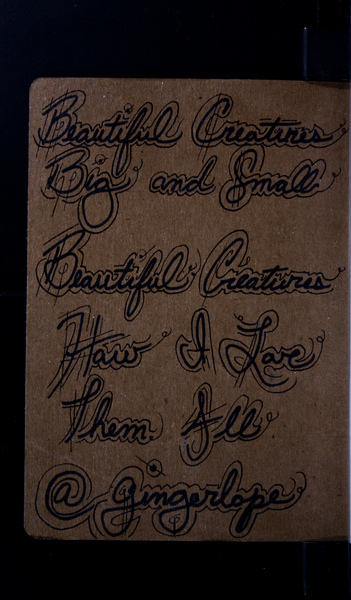 Beautiful Creatures
Big and Small
Beautiful Creatures
How I Love
Them All
@gingerlope